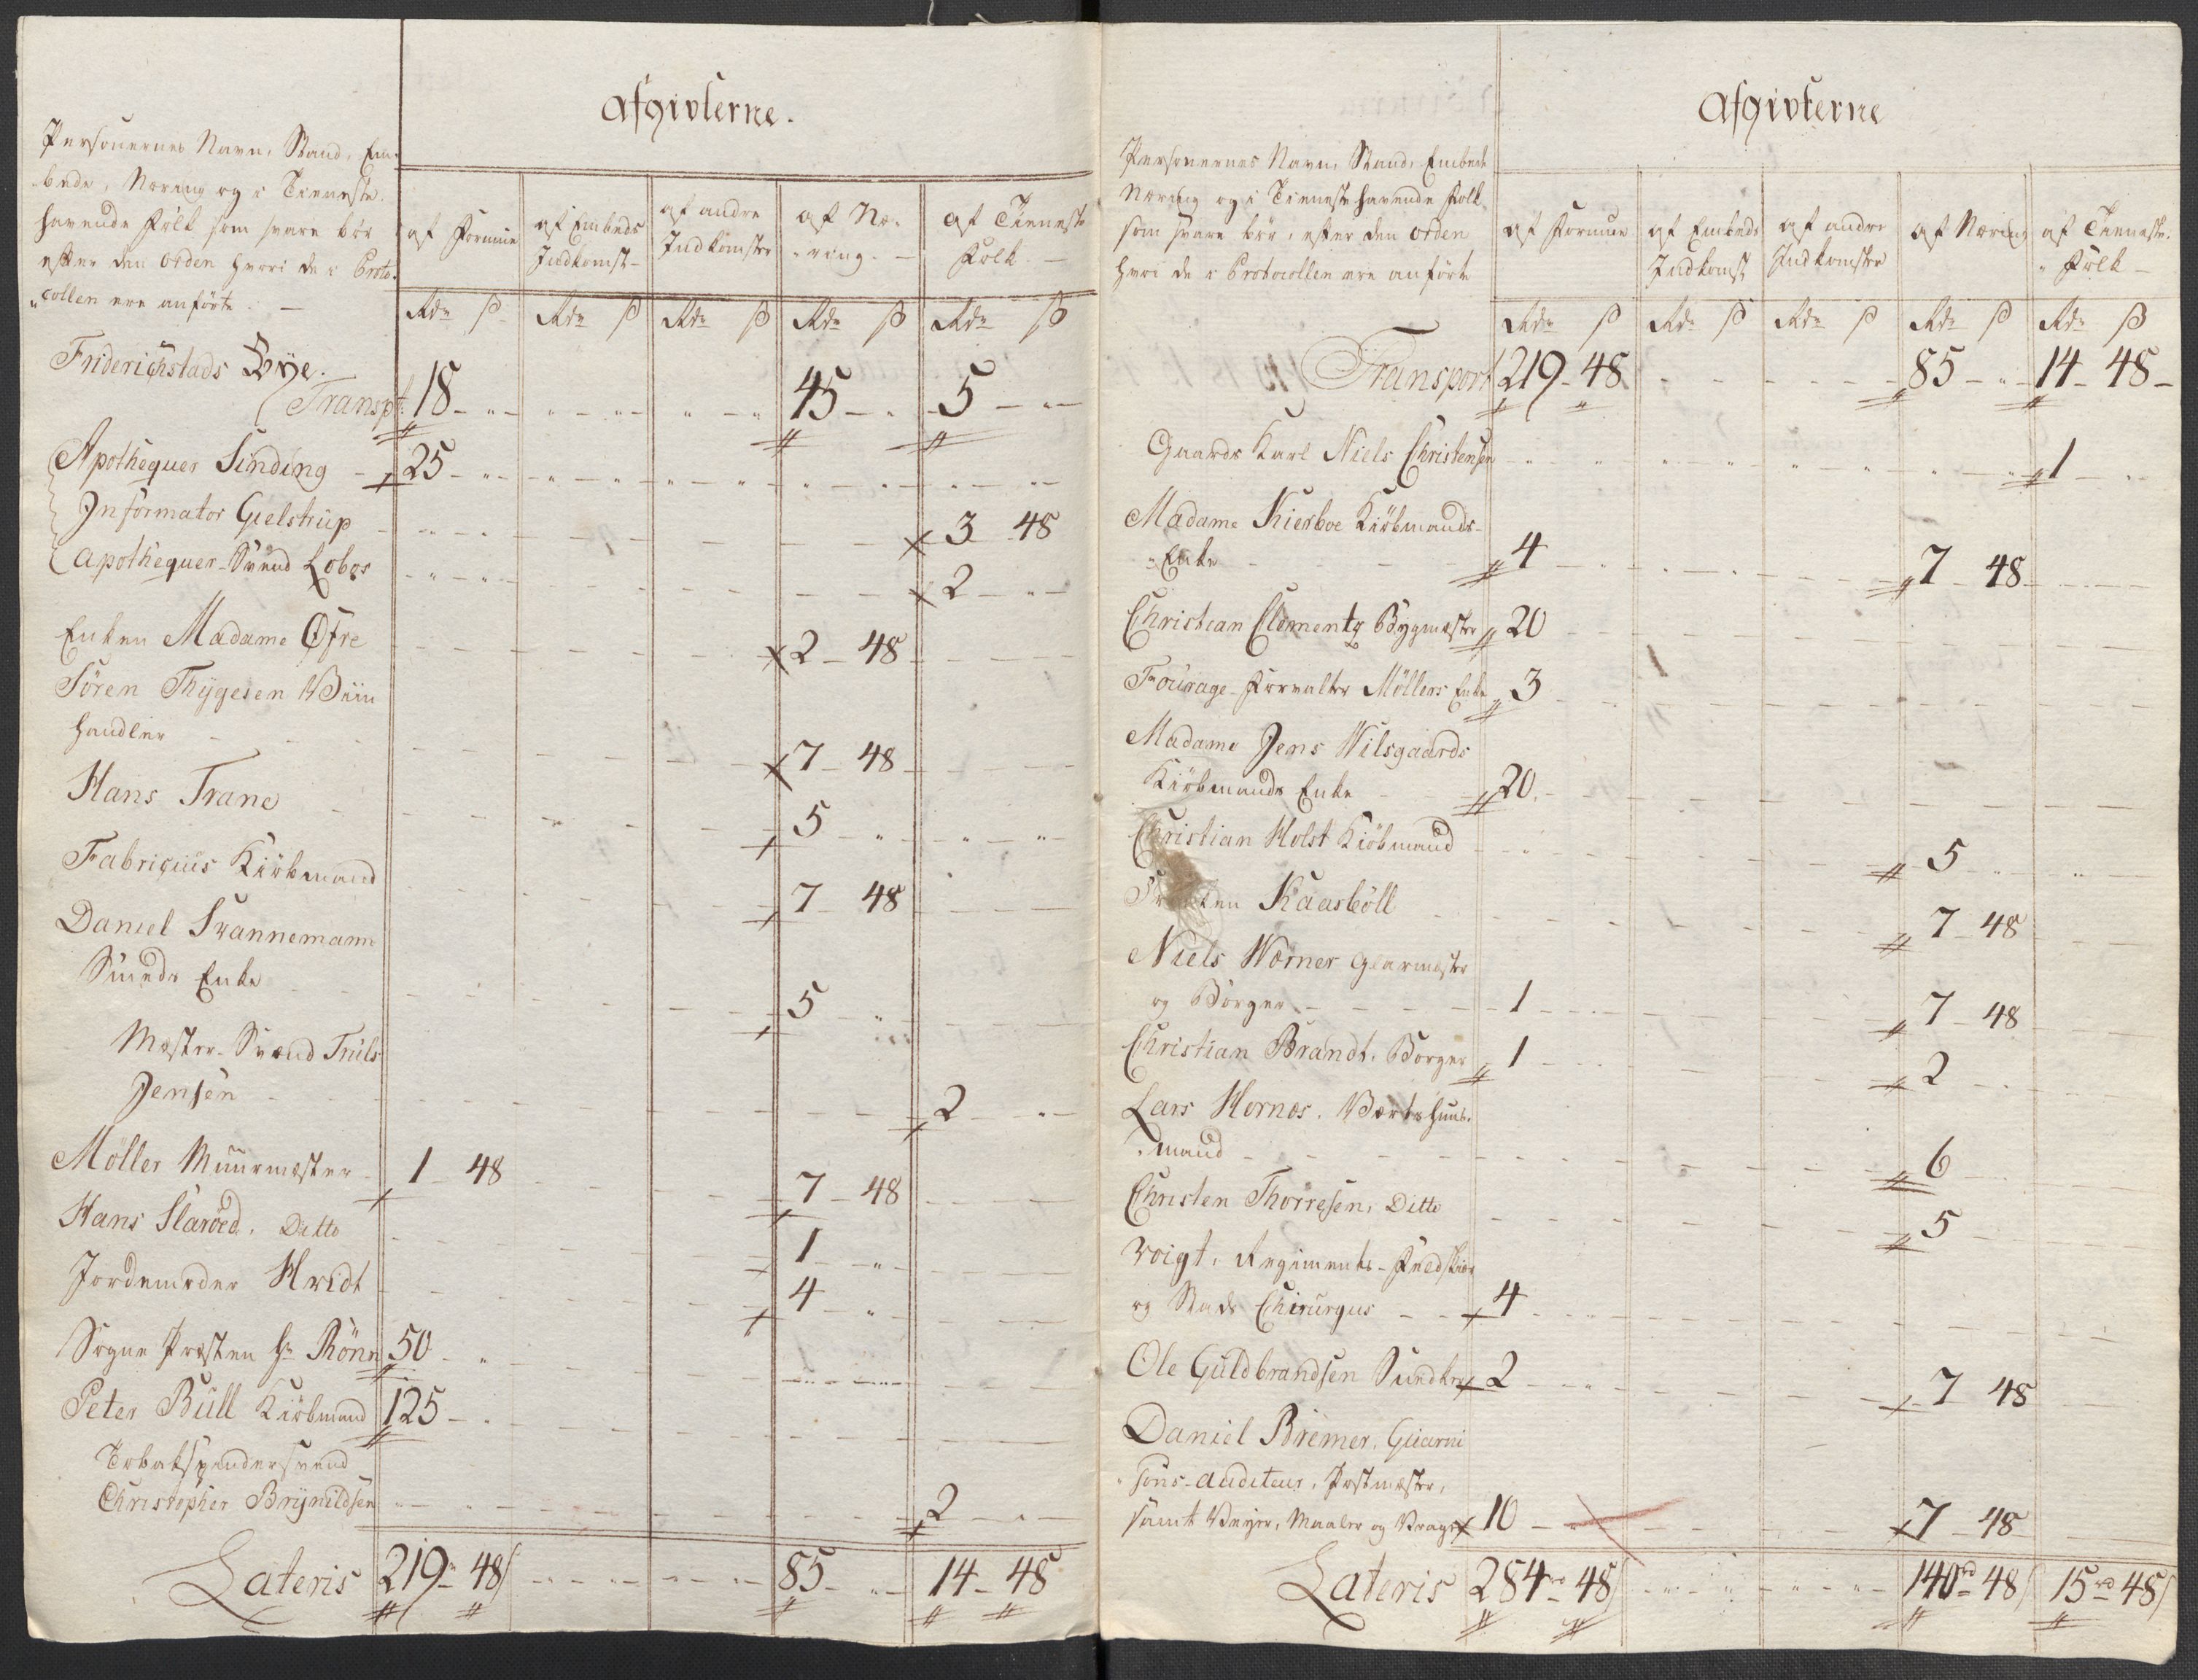 Afgivterne.
Personernes Navn, Stand, Em-
bede, Næring og i Tieneste
havende Folk som svare bör
efter den Orden hvori de i Proto-
collen ere anförte. —
af Formue
af Embeds Indkomst-
af andre Indkomster
af Næ-ring. —
af Tieneste Folk. —
Rdr ß Rdr ß Rdr ß Rdr ß Rdr ß
Friderichstads Bye.
Transpt. 18 45 5
Apothequer Sinding 25
Informator Gielstrup 3 48
Apothequer-Svend Lobes 2
Enken Madame Øfre 2 48
Sören Thygesen Viin
handler 7 48
Hans Trane 5
Fabricius Kiöbmand 7 48
Daniel Svannemann
Smeds Enke 5
Mester-Svend Truls
Jensen 2
Möller Muurmester 1 48 7 48
Hans Slaröed. Ditto 1
Jordemoder Hvidt 4
Sogne Præsten Hr Rönn 50
Peter Bull Kiöbmand 125
Tobakspindersvend
Christopher Brynildsen 2
Lateris 219 48 85 14 48
Afgivterne
Personernes Navn, Stand, Embede
Næring og i Tieneste havende Folk
som svare bör, efter den Orden
hvori de i Protocollen ere anförte
af Formue
af Embeds Indkomst
af andre Indkomster
af Næring
af Tieneste-Folk —
Rdr ß Rdr ß Rdr ß Rdr ß Rdr ß
Transport 219 48 85 14 48
Gaards Karl Niels Christensen 1
Madame Kierboe Kiöbmands-
Enke 4 7 48
Christian Clementz Bygmester 20
Fourage-Forvalter Möllers Enke 3
Madame Jens Wilsgaards
Kiöbmands Enke 20
Christian Holst Kiöbmand 5
Kaasböll 7 48
Niels Wærner Glarmester
og Borger 1 7 48
Christian Brandt. Borger 1 2
Lars Hornæs. Værtshuus-
mand 6
Christen Thorresen, Ditto 5
Voigt, Regiments-Feldskiær
og Stads Chirurgus 4
Ole Guldbrandsen 2 7 48
Daniel Bremer, Guarni
sons-Auditeur, Postmester,
samt Veyer, Maaler og Vrager 10 7 48
Lateris 284 48 140rd 48 15rd 48